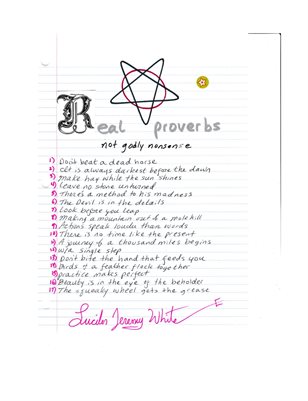 Real proverbs
not godly nonsense
1) Don't beat a dead horse
2) It is always darkest before the dawn
3) Make hay while the sun shines
4) Leave no stone unturned
5) There's a method to his madness
6) The Devil is in the details
7) Look before you leap
8) Making a mountain out of a molehill
9) Actions speak louder than words
10) There is no time like the present
11) A journey of a thousand miles begins
12) w/a single step
13) Don't bite the hand that feeds you
14) Birds of a feather flock together
15) practice makes perfect
16) Beauty is in the eye of the beholder
17) The squeaky wheel gets the grease
Jeremy White